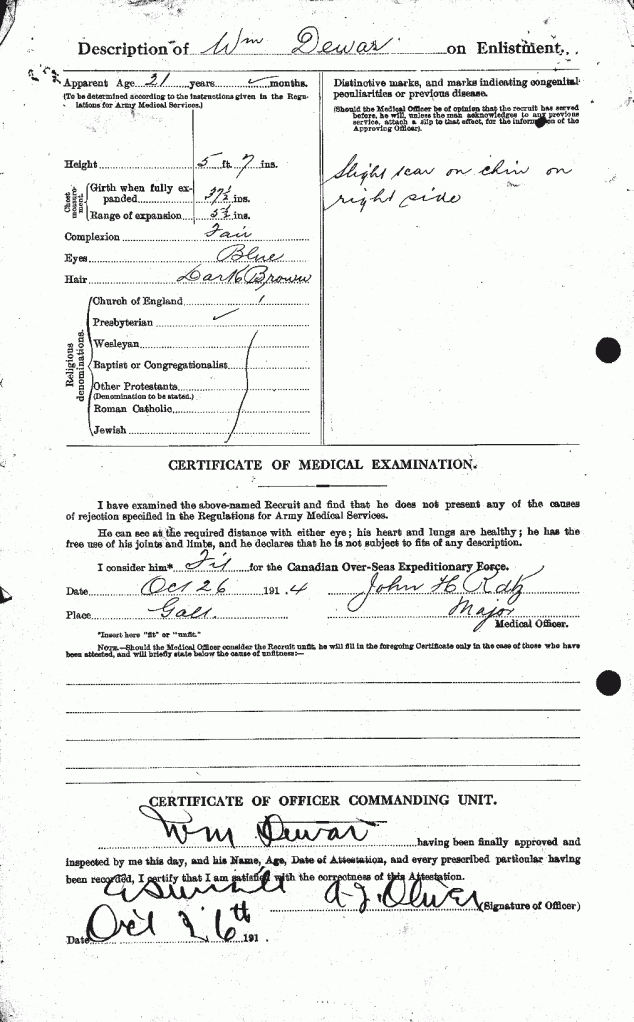 Description of Wm Dewar on Enlistment.
Apparent Age 21 years ✓ months.
(To be determined according to the instructions given in the Regulations for Army Medical Services.)
Height 5 ft. 7 ins.
Chest measurement.
Girth when fully expanded 37½ ins.
Range of expansion 5½ ins.
Complexion Fair
Eyes Blue
Hair Dark Brown
Religious denominations.
Church of England
Presbyterian ✓
Wesleyan
Baptist or Congregationalist
Other Protestants
(Denomination to be stated.)
Roman Catholic
Jewish
Distinctive marks, and marks indicating congenital
peculiarities or previous disease.
(Should the Medical Officer be of opinion that the recruit has served
before, he will, unless the man acknowledges to any previous
service, attach a slip to that effect, for the information of the
Approving Officer).
Slight scar on chin on
right side
CERTIFICATE OF MEDICAL EXAMINATION.
I have examined the above-named Recruit and find that he does not present any of the causes
of rejection specified in the Regulations for Army Medical Services.
He can see at the required distance with either eye; his heart and lungs are healthy; he has the
free use of his joints and limbs, and he declares that he is not subject to fits of any description.
I consider him* Fit for the Canadian Over-Seas Expeditionary Force.
Date Oct 26 191.4 John H
Place Galt. Major
Medical Officer.
*Insert here "fit" or "unfit."
NOTE.—Should the Medical Officer consider the Recruit unfit, he will fill in the foregoing Certificate only in the case of those who have
been attested, and will briefly state below the cause of unfitness:—
CERTIFICATE OF OFFICER COMMANDING UNIT.
Wm Dewar having been finally approved and
inspected by me this day, and his Name, Age, Date of Attestation, and every prescribed particular having
been recorded, I certify that I am satisfied with the correctness of this Attestation.
A. J. Oliver (Signature of Officer)
Date Oct 26th 191 .